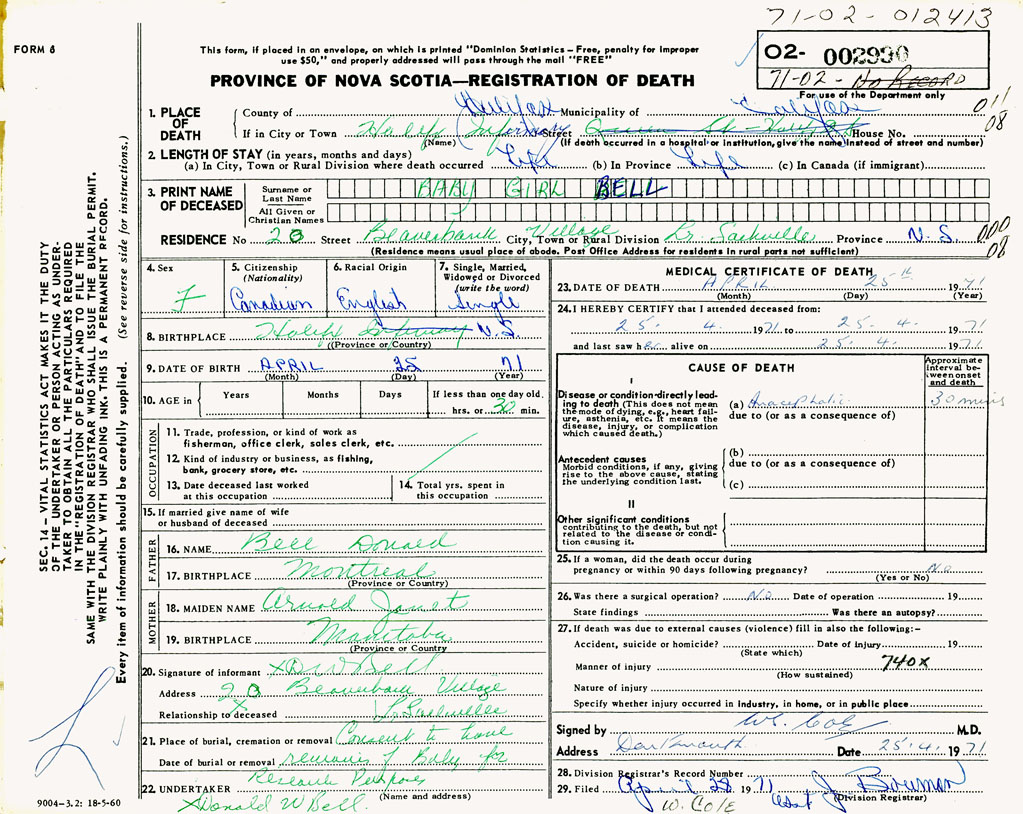 71-02-012413
FORM 6
This form, if placed in an envelope, on which is printed "Dominion Statistics – Free, penalty for improper
use $50," and properly addressed will pass through the mail "FREE"
O2- 002990
71-02- No RECORD
PROVINCE OF NOVA SCOTIA—REGISTRATION OF DEATH
For use of the Department only
011
08
1. PLACE OF DEATH
County of Halifax Municipality of Halifax
If in City or Town Halifax Infirmary Street House No.
(Name) (If death occurred in a hospital or institution, give the name instead of street and number)
2. LENGTH OF STAY (in years, months and days)
(a) In City, Town or Rural Division where death occurred Life (b) In Province Life (c) In Canada (if immigrant)
3. PRINT NAME OF DECEASED
Surname or Last Name BABY GIRL BELL
All Given or Christian Names
RESIDENCE No 20 Street Beaverbank Village City, Town or Rural Division Lr. Sackville Province N.S.
000
08
(Residence means usual place of abode. Post Office Address for residents in rural parts not sufficient)
4. Sex
F
5. Citizenship
(Nationality)
Canadian
6. Racial Origin
English
7. Single, Married,
Widowed or Divorced
(write the word)
Single
8. BIRTHPLACE Halifax Infirmary N.S.
((Province or Country)
9. DATE OF BIRTH APRIL 25 71
(Month) (Day) (Year)
10. AGE in
Years
Months
Days
If less than one day old.
hrs. or 30 min.
OCCUPATION
11. Trade, profession, or kind of work as
fisherman, office clerk, sales clerk, etc.
12. Kind of industry or business, as fishing,
bank, grocery store, etc.
13. Date deceased last worked
at this occupation
14. Total yrs. spent in
this occupation
15. If married give name of wife
or husband of deceased
FATHER
16. NAME Bell Donald
17. BIRTHPLACE Montreal
(Province or Country)
MOTHER
18. MAIDEN NAME Arnold Janet
19. BIRTHPLACE Manitoba
(Province or Country
20. Signature of informant X D W Bell
Address 20 Beaverbank Village
Relationship to deceased L. Sackville
21. Place of burial, cremation or removal Consent to have
Date of burial or removal remains of Baby for
Research Purposes
22. UNDERTAKER
(Name and address)
X Donald W Bell.
MEDICAL CERTIFICATE OF DEATH
23. DATE OF DEATH APRIL 25th 1971
(Month) (Day) (Year)
24. I HEREBY CERTIFY that I attended deceased from:
25. 4. 1971 to 25. 4. 1971
and last saw her alive on 25. 4. 1971
CAUSE OF DEATH
Approximate
interval be-
tween onset
and death
I
Disease or condition directly lead-
ing to death (This does not mean
the mode of dying, e.g., heart fail-
ure, asthenia, etc. It means the
disease, injury, or complication
which caused death.)
(a) Anacephalic 30 mins
due to (or as a consequence of)
Antecedent causes
Morbid conditions, if any, giving
rise to the above cause, stating
the underlying condition last.
(b)
due to (or as a consequence of)
(c)
II
Other significant conditions
contributing to the death, but not
related to the disease or condi-
tion causing it.
25. If a woman, did the death occur during
pregnancy or within 90 days following pregnancy? No
(Yes or No)
26. Was there a surgical operation? No Date of operation 19
State findings Was there an autopsy?
27. If death was due to external causes (violence) fill in also the following:–
Accident, suicide or homicide? Date of injury 19
(State which)
Manner of injury 740X
(How sustained)
Nature of injury
Specify whether injury occurred in Industry, in home, or in public place
Signed by W. Cole M.D.
Address Dartmouth Date 25.4. 1971
28. Division Registrar's Record Number
29. Filed April 28 1971 Asst J Bowman
(Division Registrar)
W. COLE
SEC. 14 – VITAL STATISTICS ACT MAKES IT THE DUTY
OF THE UNDERTAKER OR PERSON ACTING AS UNDER-
TAKER TO OBTAIN ALL THE PARTICULARS REQUIRED
IN THE "REGISTRATION OF DEATH" AND TO FILE THE
SAME WITH THE DIVISION REGISTRAR WHO SHALL ISSUE THE BURIAL PERMIT.
WRITE PLAINLY WITH UNFADING INK. THIS IS A PERMANENT RECORD.
Every item of information should be carefully supplied. (See reverse side for instructions.)
9004-3.2: 18-5-60